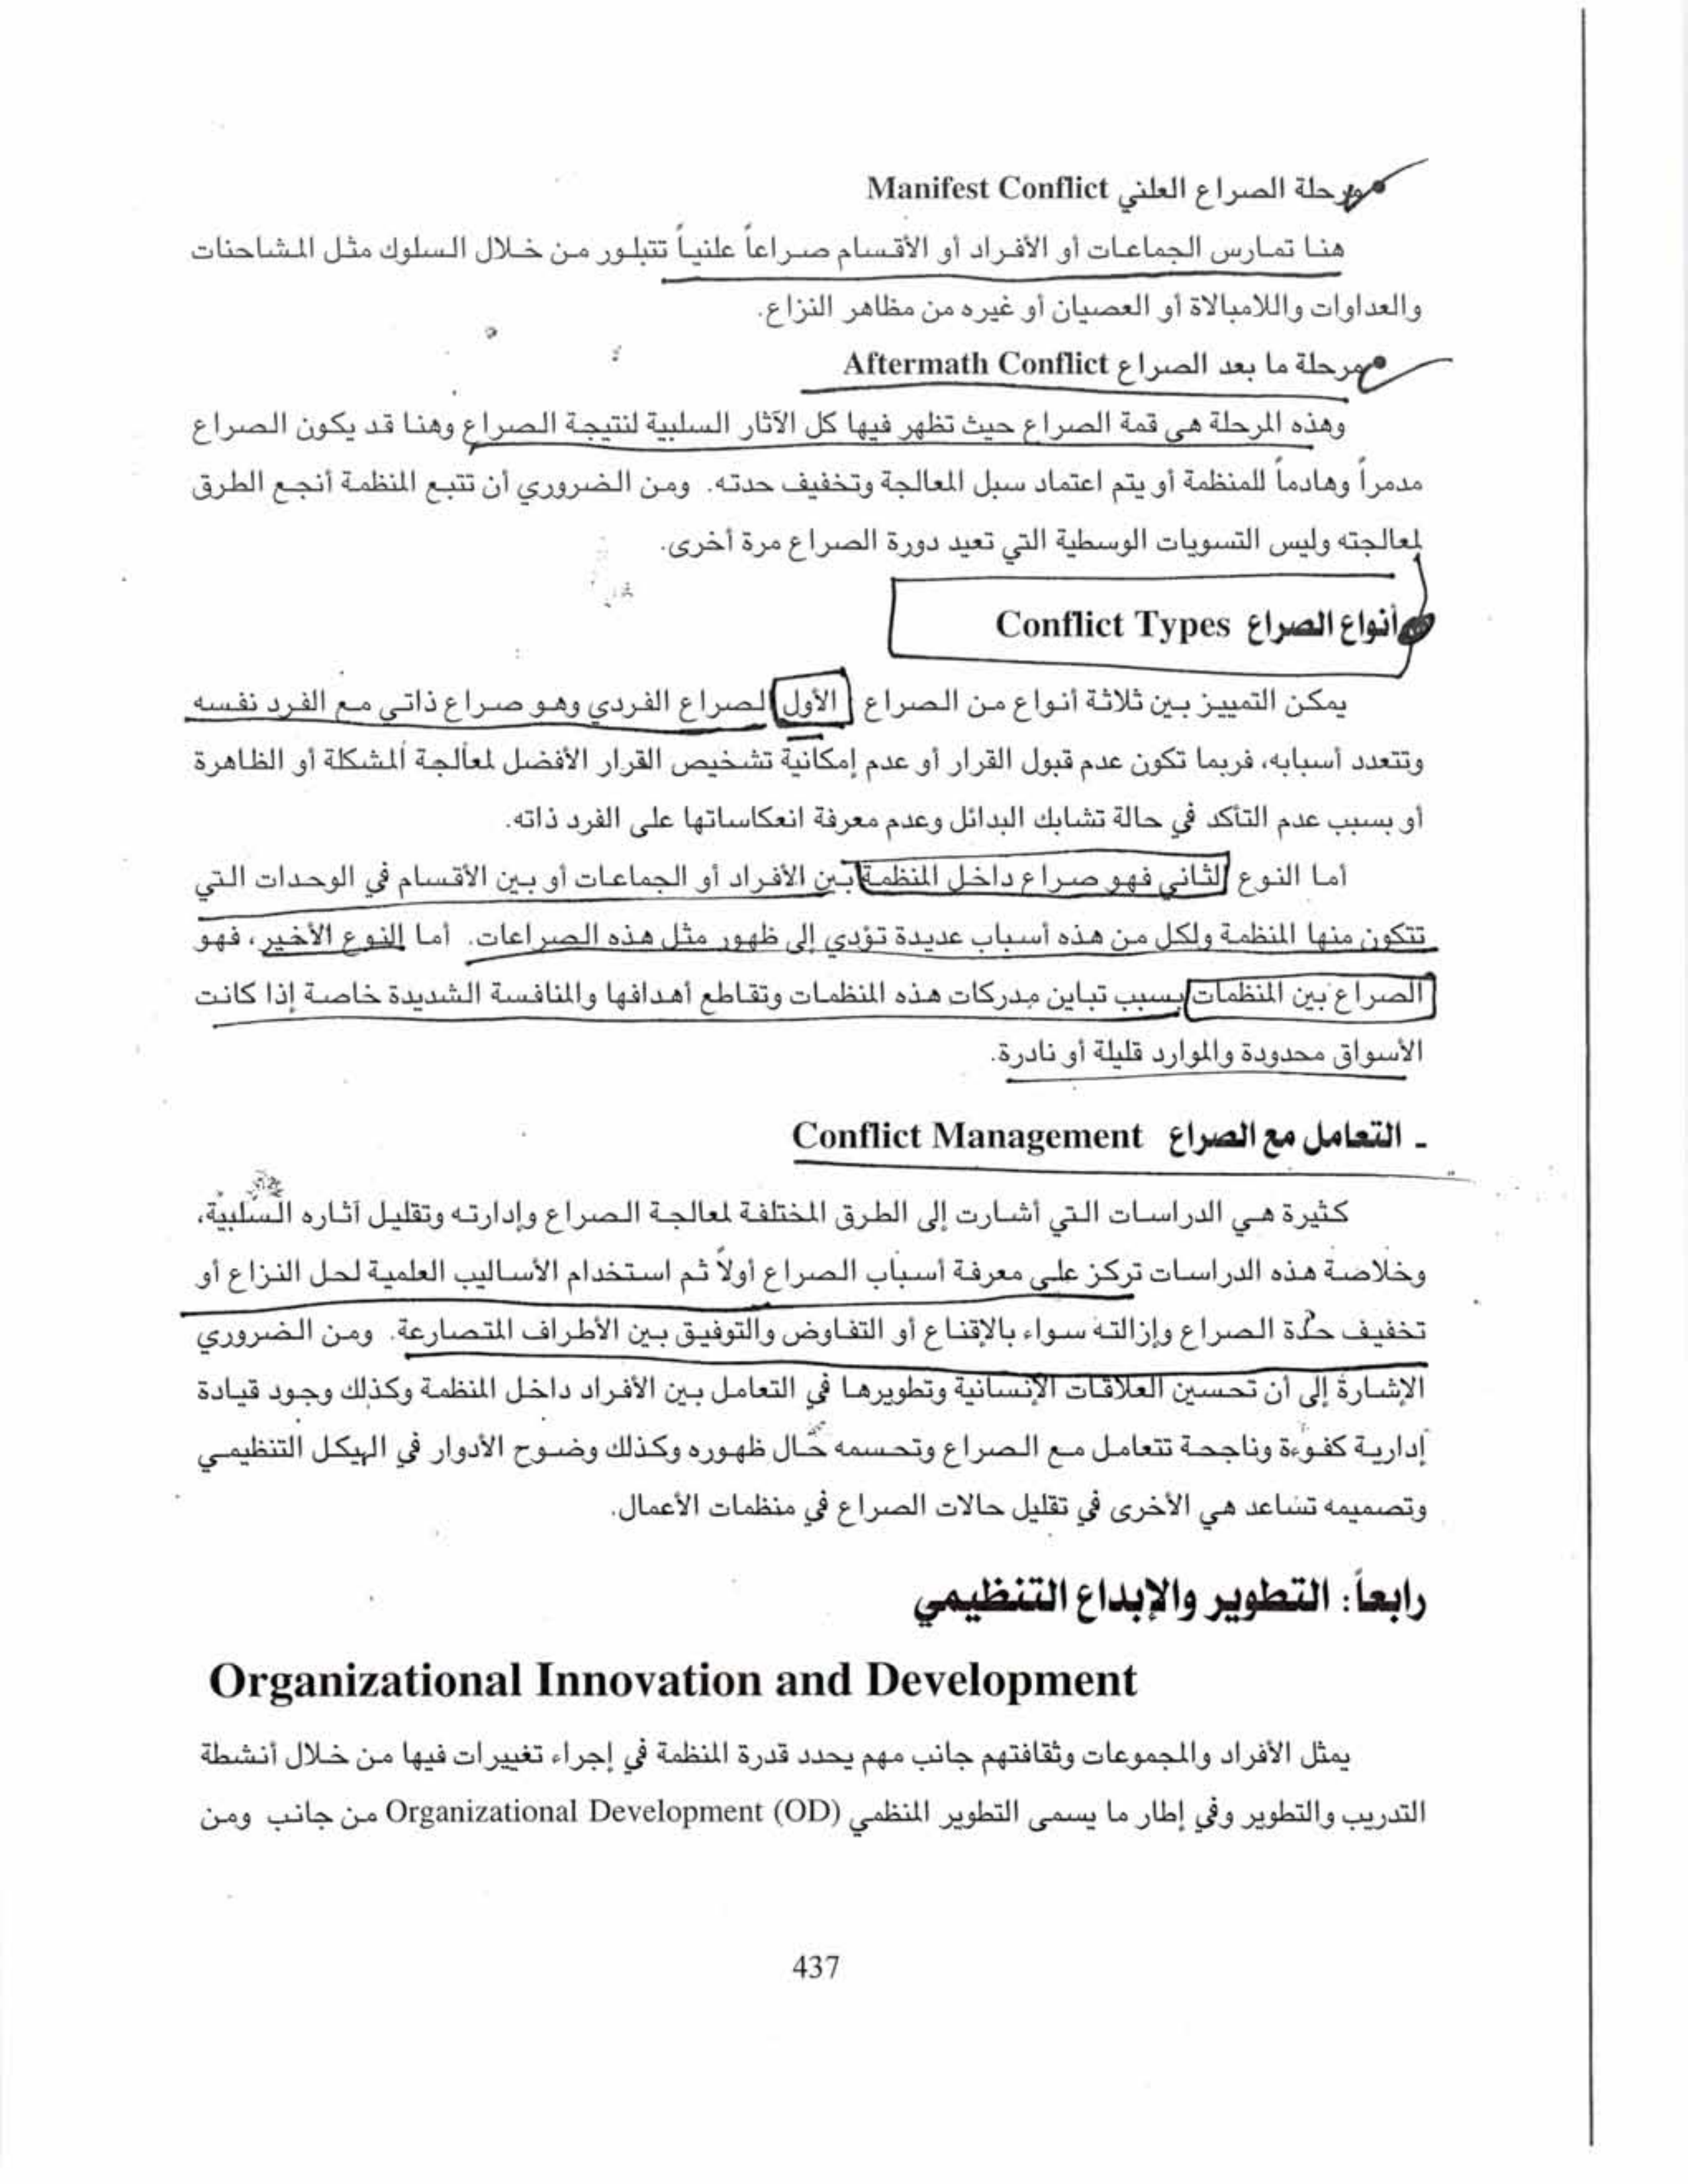 مرحلة الصراع العلني Manifest Conflict
هنا تمارس الجماعات أو الأفراد أو الأقسام صراعاً علنياً تتبلور من خلال السلوك مثل المشاحنات
والعداوات واللامبالاة أو العصيان أو غيره من مظاهر النزاع.
مرحلة ما بعد الصراع Aftermath Conflict
وهذه المرحلة هي قمة الصراع حيث تظهر فيها كل الآثار السلبية لنتيجة الصراع وهنا قد يكون الصراع
مدمراً وهادماً للمنظمة أو يتم اعتماد سبل المعالجة وتخفيف حدته. ومن الضروري أن تتبع المنظمة أنجع الطرق
لمعالجته وليس التسويات الوسطية التي تعيد دورة الصراع مرة أخرى.
أنواع الصراع Conflict Types
يمكن التمييز بين ثلاثة أنواع من الصراع الأول الصراع الفردي وهو صراع ذاتي مع الفرد نفسه
وتتعدد أسبابه، فربما تكون عدم قبول القرار أو عدم إمكانية تشخيص القرار الأفضل لمعالجة المشكلة أو الظاهرة
أو بسبب عدم التأكد في حالة تشابك البدائل وعدم معرفة انعكاساتها على الفرد ذاته.
أما النوع الثاني فهو صراع داخل المنظمة بين الأفراد أو الجماعات أو بين الأقسام في الوحدات التي
تتكون منها المنظمة ولكل من هذه أسباب عديدة تؤدي إلى ظهور مثل هذه الصراعات. أما النوع الأخير، فهو
الصراع بين المنظمات بسبب تباين مدركات هذه المنظمات وتقاطع أهدافها والمنافسة الشديدة خاصة إذا كانت
الأسواق محدودة والموارد قليلة أو نادرة.
ـ التعامل مع الصراع Conflict Management
كثيرة هي الدراسات التي أشارت إلى الطرق المختلفة لمعالجة الصراع وإدارته وتقليل آثاره السلبية،
وخلاصة هذه الدراسات تركز على معرفة أسباب الصراع أولاً ثم استخدام الأساليب العلمية لحل النزاع أو
تخفيف حدة الصراع وإزالته سواء بالإقناع أو التفاوض والتوفيق بين الأطراف المتصارعة. ومن الضروري
الإشارة إلى أن تحسين العلاقات الإنسانية وتطويرها في التعامل بين الأفراد داخل المنظمة وكذلك وجود قيادة
إدارية كفوءة وناجحة تتعامل مع الصراع وتحسمه حال ظهوره وكذلك وضوح الأدوار في الهيكل التنظيمي
وتصميمه تساعد هي الأخرى في تقليل حالات الصراع في منظمات الأعمال.
رابعاً: التطوير والإبداع التنظيمي
Organizational Innovation and Development
يمثل الأفراد والمجموعات وثقافتهم جانب مهم يحدد قدرة المنظمة في إجراء تغييرات فيها من خلال أنشطة
التدريب والتطوير وفي إطار ما يسمى التطوير المنظمي Organizational Development (OD) من جانب ومن
437